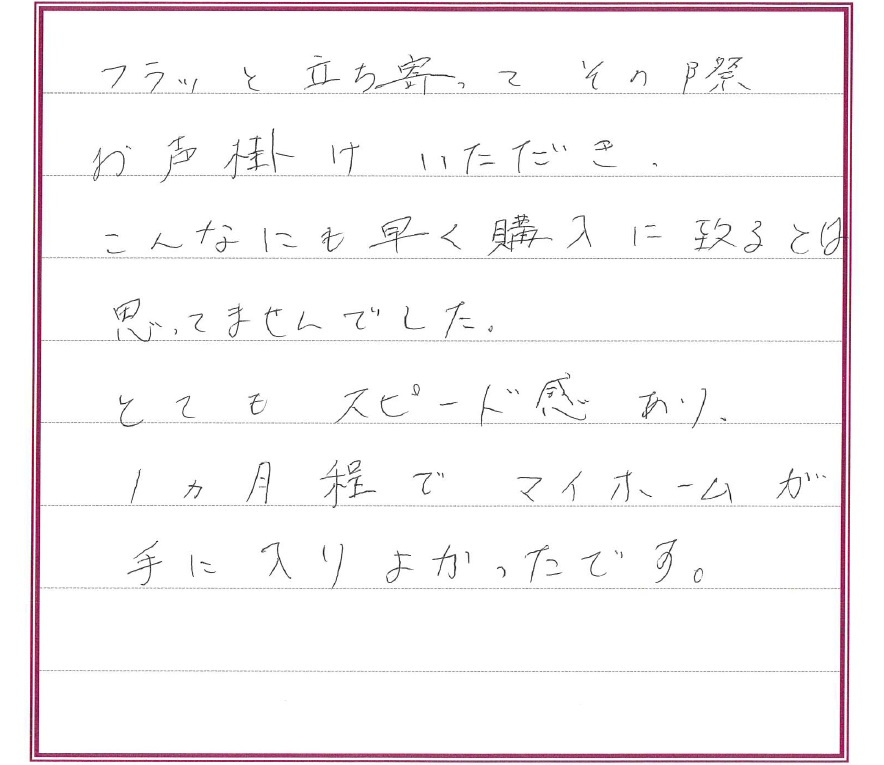 フラッと立ち寄ってその際
お声掛けいただき、
こんなにも早く購入に致るとは
思ってませんでした。
とてもスピード感あり、
1ヵ月程でマイホームが
手に入りよかったです。